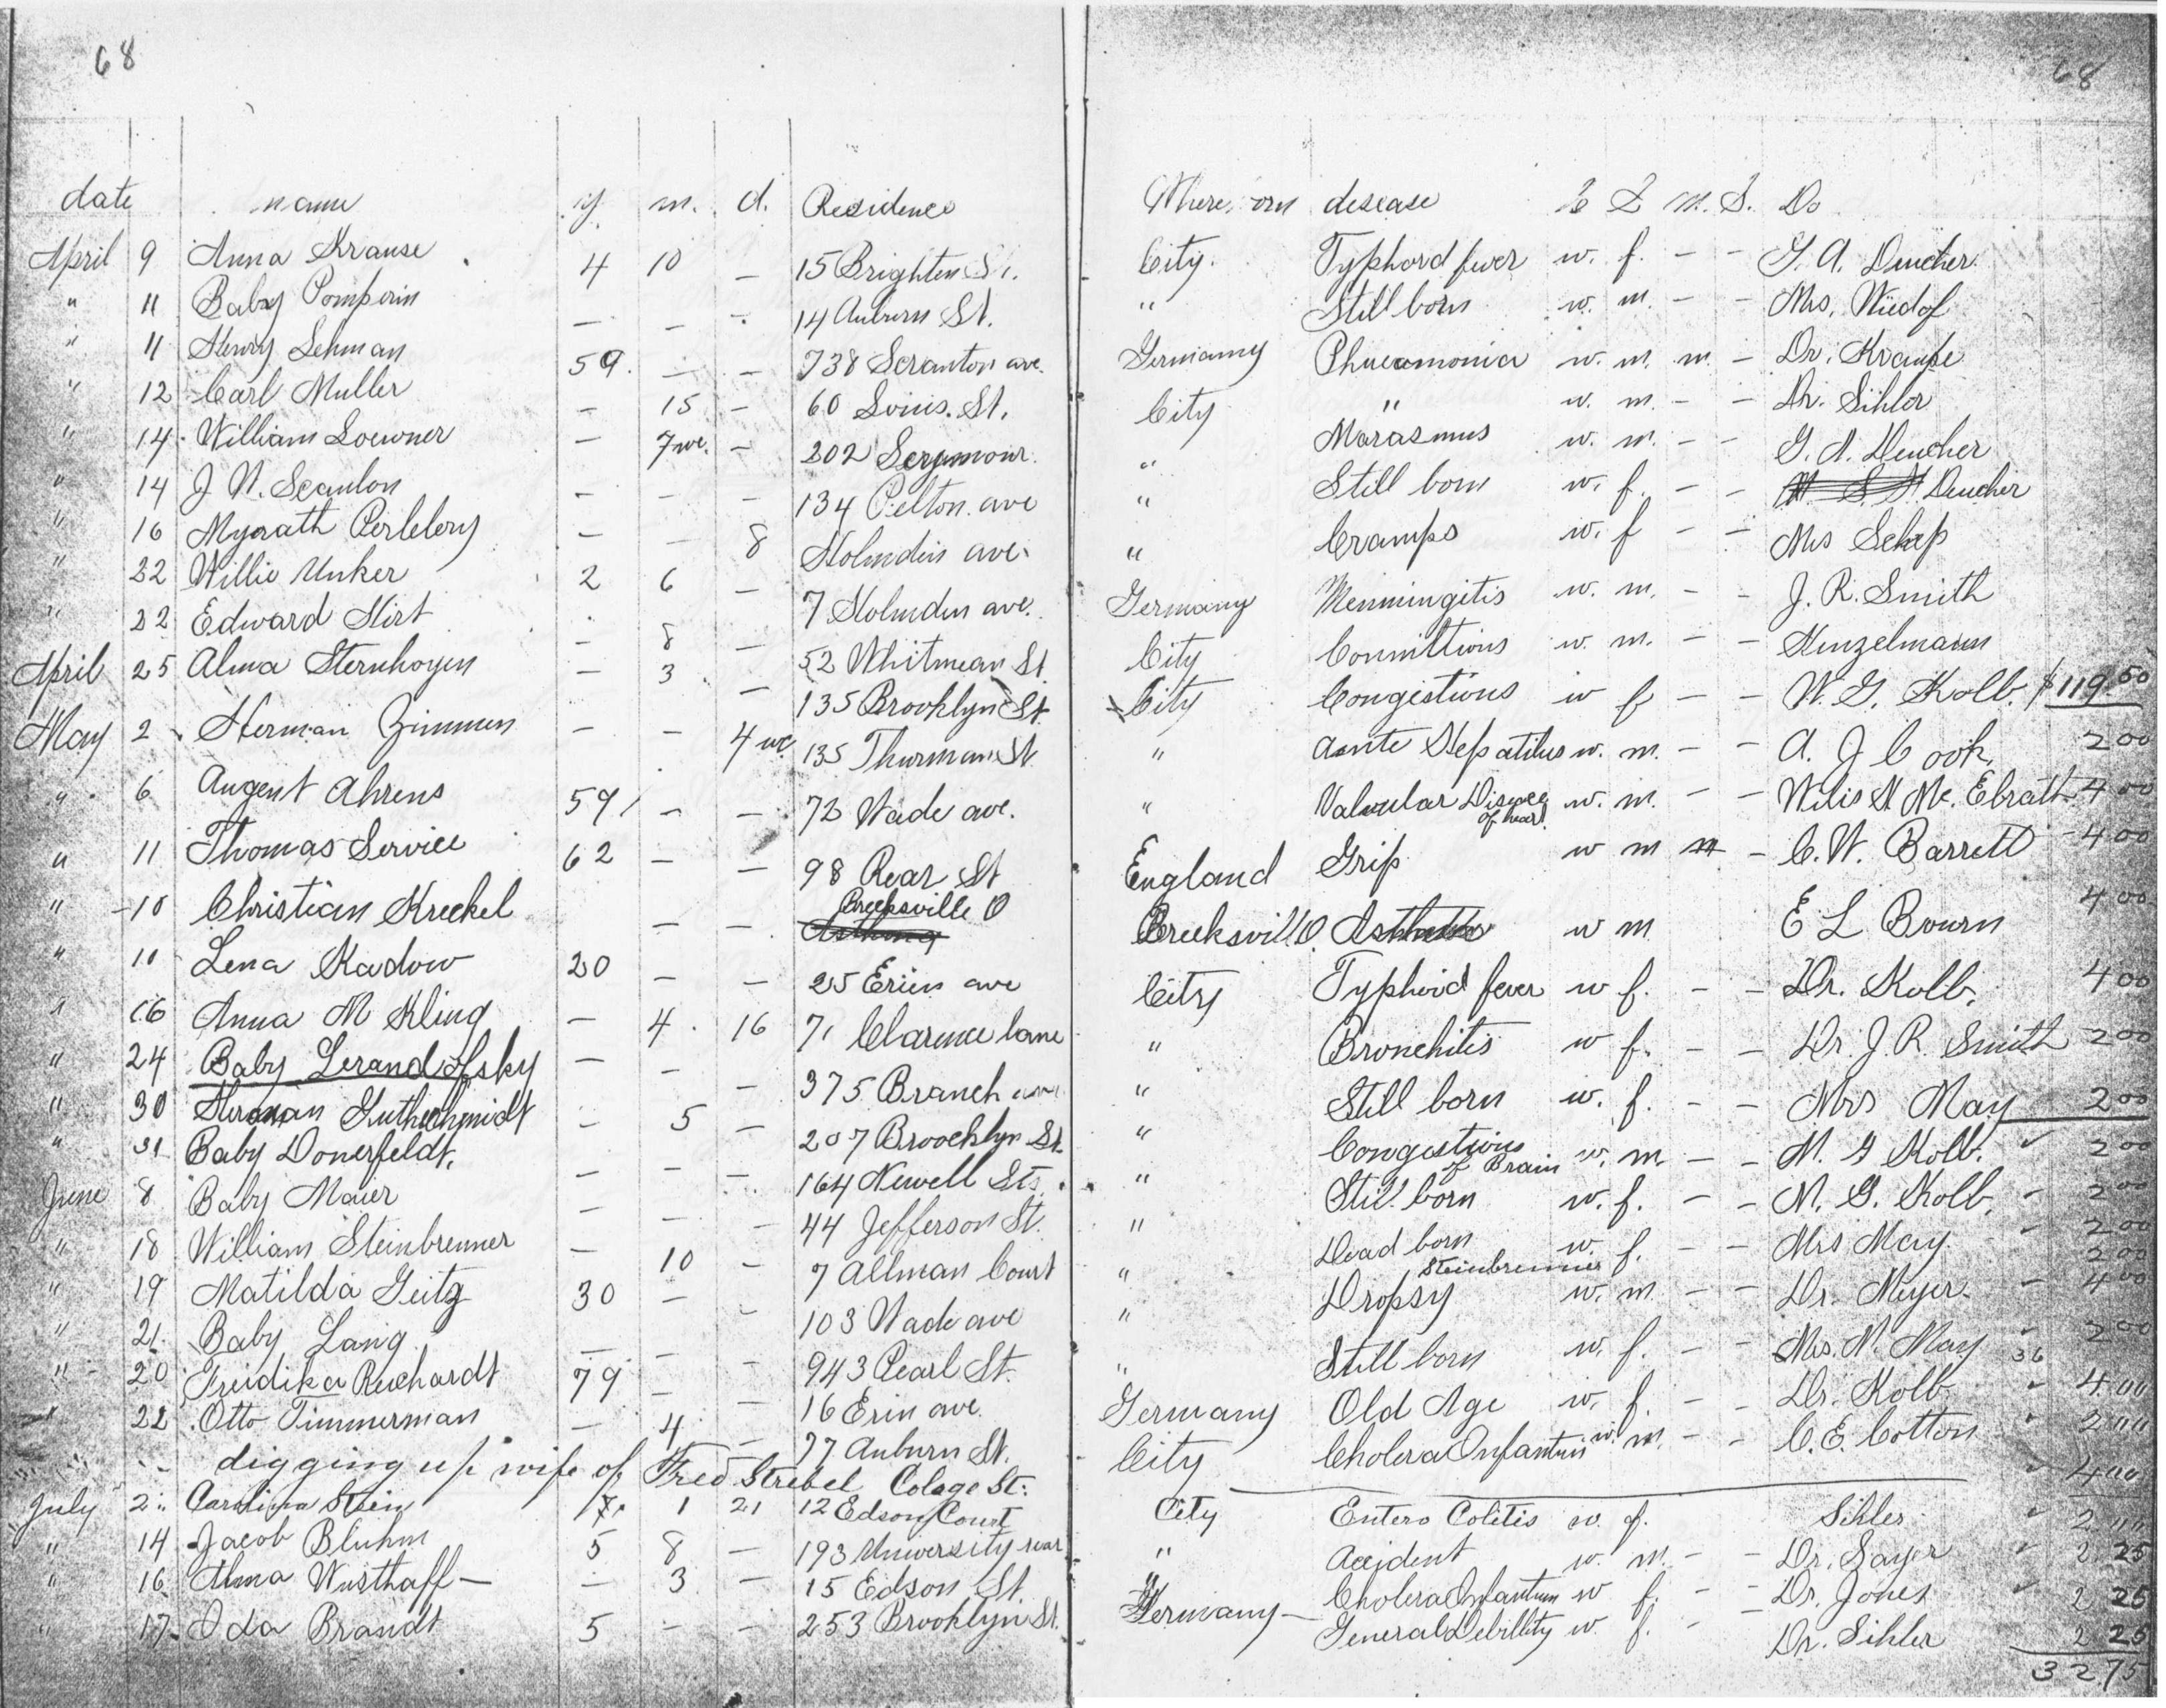 68 68
date name y. m. d. Residence Where orn desease C S m. S. Do
April 9 Anna Krause 4 10 — 15 Brighton St. City. Typhord fever w. f. — — G. A. Deucher
" 11 Baby Pomperin — — - 14 Auburn St. " Still born w. m. — — Mrs. Wiedof
" 11 Henry Lehman 59. — — 738 Scranton ave. Germany Phneomonia w. m. m. — Dr. Krause
" 12 Carl Muller — 15 — 60 Louis. St. City " w. m. — — Dr. Sihler
" 14 William Loewner — 7 we. — 202 Serymour. " Marasmus w. m. — — G. A. Deucher
" 14 J N. Scanlon — — — 134 Pelton. ave " Still born w. f. — — Deucher
" 16 Myrath Perlebery — — 8 Holmden ave. " Cramps w. f — — Mrs Schep
" 22 Willie Unker 2 6 — 7 Holmden ave. Germany Menningitis w. m. — — J. R. Smith
" 22 Edward Hirt — 8 — 52 Whitman St City w. m. — — Henzelmann
April 25 Alma Sternhoyen — 3 — 135 Brooklyn St. City Congestions w f — — W. G. Kolb. $119.50
May 2 Herman Zimmen — — 4 we 135 Thurman St " w. m. — — A. J Cook. 2 00
" 6 Augent Ahrens 59 — — 72 Wade ave. " Valvular Disease of heart w. m. — — Wilis H Mc. Ebrath 4 00
" 11 Thomas Service 62 — — 98 Rear St England Grip w m m — C. W. Barrett 4 00
" 10 Christian Kreckel — — Brecksville O Asthma Brecksvill O. Asthma w m E L Bourn 4 00
" 10 Lena Kadow 20 — — 25 Erien ave City Typhoid fever w f. — — Dr. Kolb. 4 00
" 16 Anna M Kling — 4 16 71 Clarence lane " Bronchitis w f. — — Dr. J. R. Smith 2 00
" 24 Baby Lerandofsky — — — 375 Branch ave " Still born w. f. — — Mrs May 2 00
" 30 Herman Guthschmidt — 5 — 207 Broocklyn St. " Congestions of Brain w. m. — — M. G Kolb. 2 00
" 31 Baby Donerfeldt. — — — 164 Newell Sts. " Still born w. f. — — M. G. Kolb. 2 00
June 8 Baby Maier — — — 44 Jefferson St. " Dead born w. f. — — Mrs May. 2 00
" 18 William Steinbrenner — 10 — 7 Allman Court " Steinbrenner 2 00
" 19 Matilda Geitz 30 — — 103 Wade ave " Dropsy w. m — — Dr. Meyer. 4 00
" 21. Baby Lang — — — 943 Pearl St. " Still born w. f. — — Mrs. N. May 36 2 00
" 20 Freidika Reichardt 79 — — 16 Erin ave. Germany Old Age w. f. — — Dr. Kolb 4 00
" 22 Otto Timmerman — 4 — 77 Auburn St. City Cholera Infantum w. m. — — C. E. Cotton 2 00
digging up wife of Fred Strebel Colage St. 4 00
July 2 Carolina Stein 1 21 12 Edson Court City Entero Colitis w. f. Sihler 2 00
" 14 Jacob Bluhm 5 8 — 193 University rear " Accident w. m. — — Dr. Sayer 2 25
" 16 Alma Wusthaff — — 3 — 15 Edson St. " Cholera Infantum w f. — — Dr. Jones 2 25
" 17 Ida Brandt 5 — — 253 Brooklyn St. Germany — General Debillity w. f. — Dr. Sihler 2 25
32.75